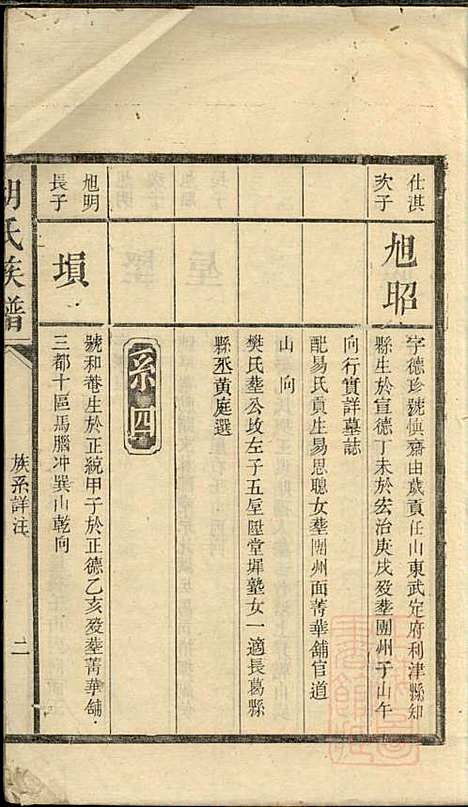 仕淇
次子
旭昭
字德珍號慎齋由歲貢任山東武定府利津縣知
縣生於宣德丁未於宏治庚戌歿塟團州子山午
向行實詳墓誌
配易氏貢生易思聰女塟團州面菁華舖官道
山向
樊氏塟公墳左子五垕陞堂墀塾女一適長葛縣
縣丞黃庭選
系四
旭明
長子
塤
號和菴生於正統甲子於正德乙亥歿塟菁華舖
三都十區馬腦冲巽山乾向
胡氏族譜
族系詳注
二